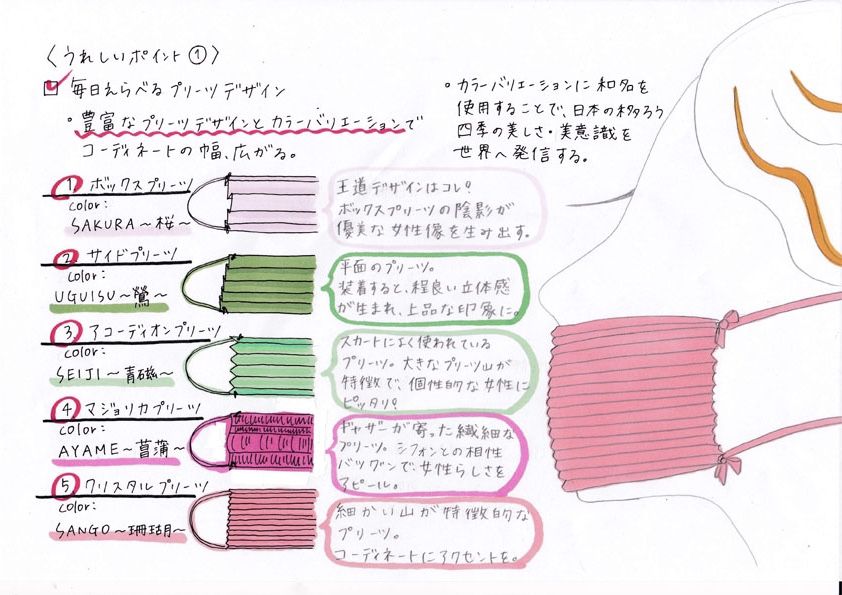 〈うれしいポイント①〉
毎日えらべるプリーツデザイン
・豊富なプリーツデザインとカラーバリエーションで
コーディネートの幅、広がる。
・カラーバリエーションに和名を
使用することで、日本の移ろう
四季の美しさ・美意識を
世界へ発信する。
① ボックスプリーツ
color:
SAKURA～桜～
王道デザインはコレ!
ボックスプリーツの陰影が
優美な女性像を生み出す。
② サイドプリーツ
color:
UGUISU～鶯～
平面のプリーツ。
装着すると、程良い立体感
が生まれ、上品な印象に。
③ アコーディオンプリーツ
color:
SEIJI～青磁～
スカートによく使われている
プリーツ。大きなプリーツ山が
特徴で、個性的な女性に
ピッタリ!
④ マジョリカプリーツ
color:
AYAME～菖蒲～
ギャザーが寄った繊細な
プリーツ。シフォンとの相性
バツグンで、女性らしさを
アピール。
⑤ クリスタルプリーツ
color:
SANGO～珊瑚～
細かい山が特徴的な
プリーツ。
コーディネートにアクセントを。